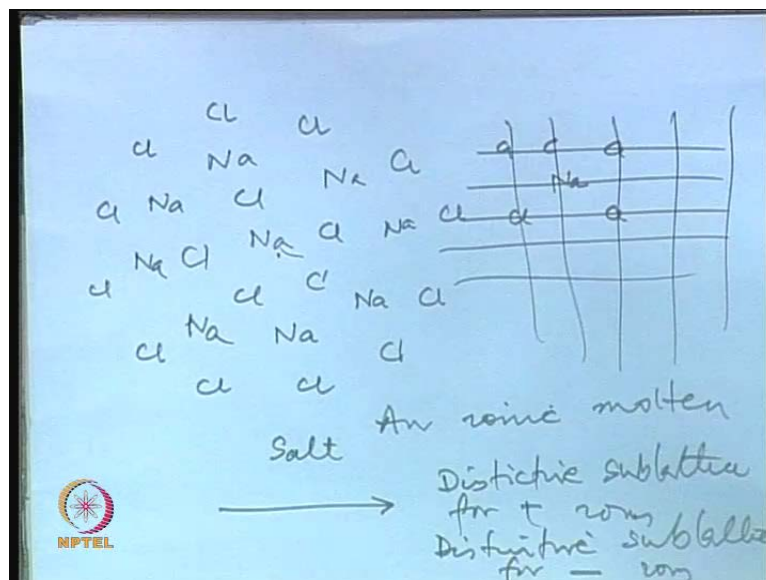 Cl Cl
Cl Na Na Cl
Cl Na Cl
Na Cl Na Cl Na
Cl Cl Cl Na Cl
Cl Na Na Cl
Cl Cl
Cl Cl Cl
Na
Cl Cl Cl
An ionic molten
Salt
Distictive sublattice
for + ions
Distinctive sublattice
for — ions
NPTEL